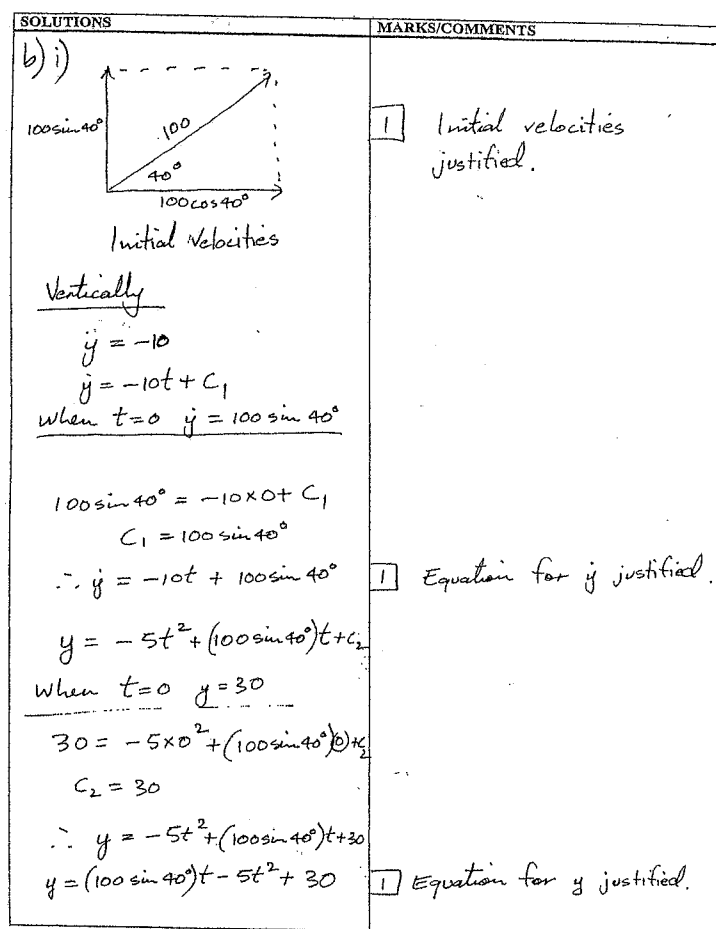 SOLUTIONS
MARKS/COMMENTS
b) i)
100sin40°
100
40°
100cos40°
Initial Velocities
1 Initial velocities
justified.
Vertically
ÿ = -10
ẏ = -10t + C₁
when t=0 ẏ = 100 sin 40°
100sin40° = -10×0 + C₁
C₁ = 100 sin40°
∴ ẏ = -10t + 100sin40°
1 Equation for ẏ justified.
y = -5t² + (100sin40°)t + C₂
when t=0 y=30
30 = -5×0² + (100sin40°)(0) + C₂
C₂ = 30
∴ y = -5t² + (100sin40°)t + 30
y = (100 sin 40°)t - 5t² + 30
1 Equation for y justified.